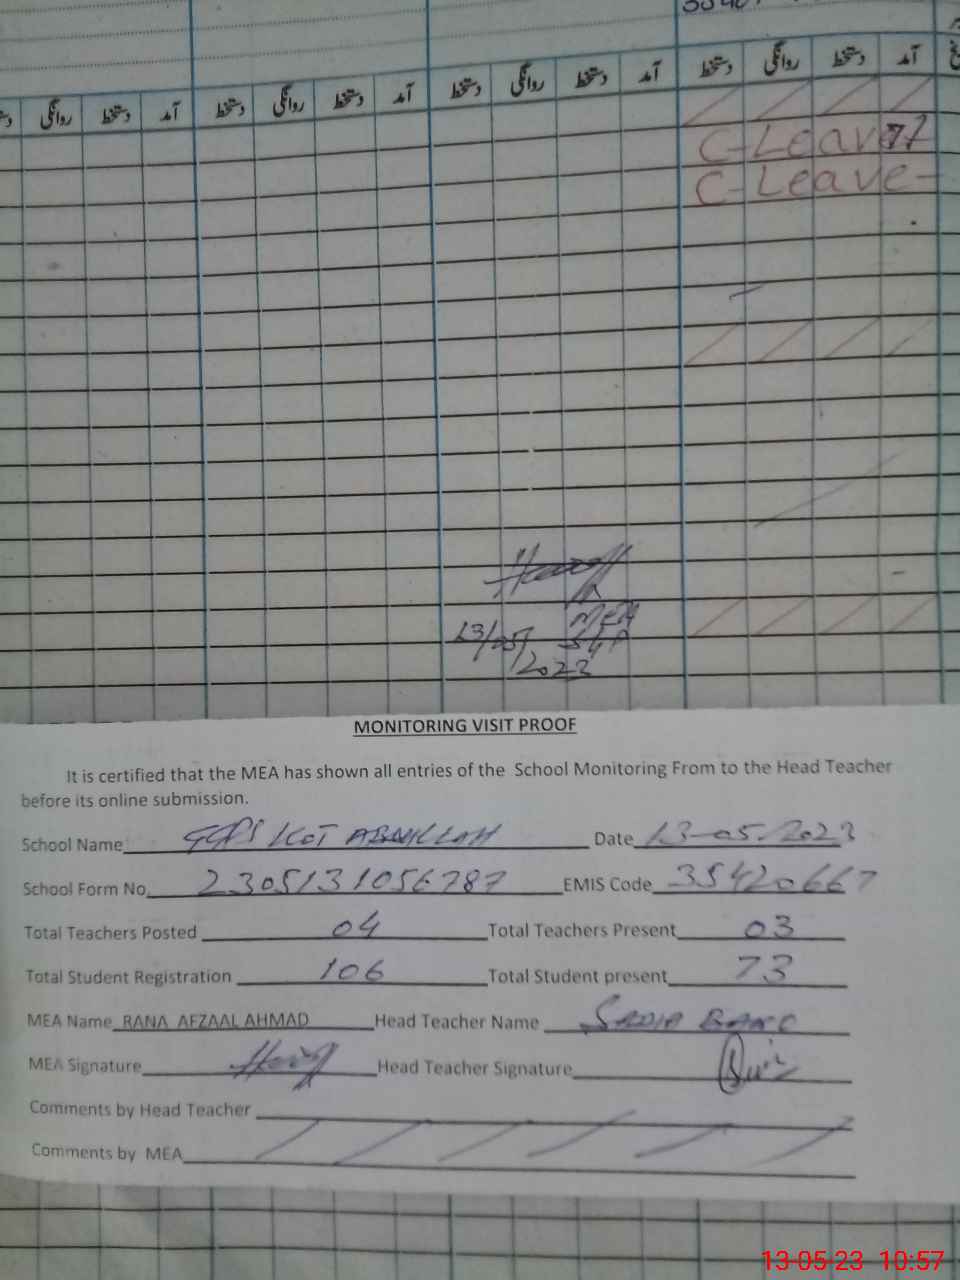 دستخط روانگی دستخط آمد دستخط روانگی دستخط آمد دستخط روانگی دستخط آمد دستخط روانگی دستخط آمد
C-Leave
C-Leave-
MEA
13/05/2023
MONITORING VISIT PROOF
It is certified that the MEA has shown all entries of the School Monitoring From to the Head Teacher
before its online submission.
School Name GGPS KOT ABDULLAH Date 13-05-2023
School Form No. 2305131056787 EMIS Code 35420667
Total Teachers Posted 04 Total Teachers Present 03
Total Student Registration 106 Total Student present 73
MEA Name RANA AFZAAL AHMAD Head Teacher Name SADIA BANO
MEA Signature Head Teacher Signature
Comments by Head Teacher
Comments by MEA
13-05-23 10:57